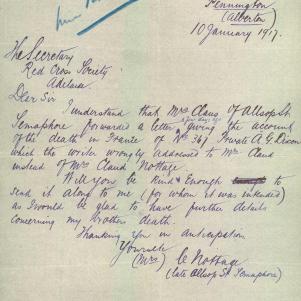 Pennington
(Alberton)
10 January 1917.
The Secretary
Red Cross Society
Adelaide
Dear Sir
I understand that Mrs Claus of Allsop St
Semaphore forwarded a letter giving the account
of the death in France of No 367 Private A G Dixon
which the writer wrongly addressed to Mrs Claud
instead of Mrs Claud Nottage.
Will you be kind Enough to
send it along to me (for whom it was intended)
as I would be glad to have further details
concerning my brother death.
Thanking you in anticipation
Yours
(Mrs) C Nottage
(late Allsop St Semaphore)